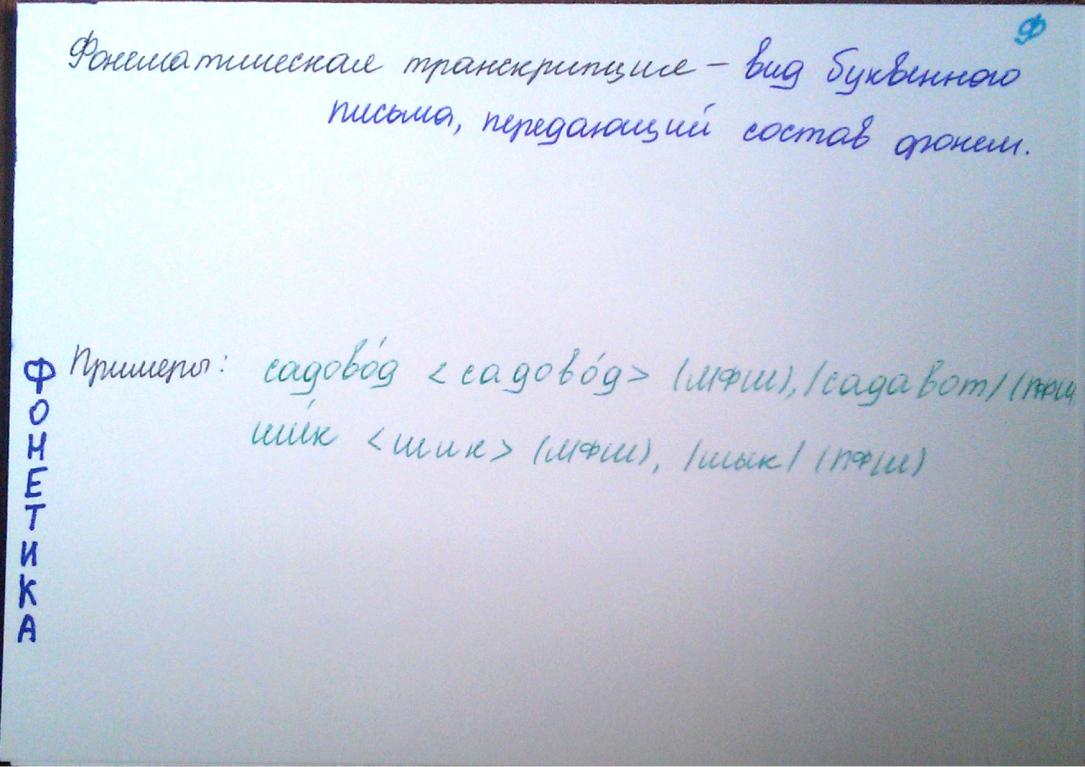 Ф
Фонематическая транскрипция – вид буквенного
письма, передающий состав фонем.
Примеры: садово́д <садово́д> (МФШ), /садавот/ (ПФШ
ши́к <шик> (МФШ), /шык/ (ПФШ)
ФОНЕТИКА